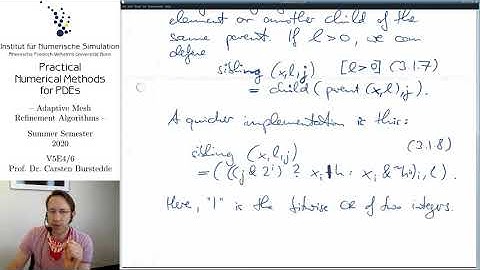 Institut für Numerische Simulation
Rheinische Friedrich-Wilhelms-Universität Bonn
Practical
Numerical Methods
for PDEs
– Adaptive Mesh
Refinement Algorithms -
Summer Semester
2020
V5E4/6
Prof. Dr. Carsten Burstedde
element or another child of the
same parent. If l>0, we can
define
sibling (x,l,j) [l>0] (3.1.7)
= child (parent (x,l),j).
A quicker implementation is this:
sibling (x,l,j) (3.1.8)
= ( ((j & 2^i) ? x_i | h : x_i & ~h)_i, l ).
Here, "|" is the bitwise OR of two integers.